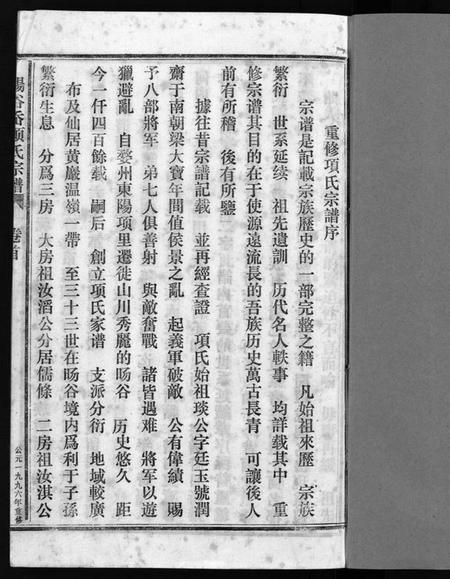 重修項氏宗譜序
宗谱是記載宗族歷史的一部完整之籍　凡始祖來歷　宗族
繁衍　世系延续　祖先遺訓　历代名人軼事　均詳载其中　重
修宗谱其目的在于使源遠流長的吾族历史萬古長青　可讓後人
前有所稽　後有所鑒
據往昔宗譜記載　並再經查證　項氏始祖琰公字廷玉號潤
齋于南朝梁大寶年間值侯景之亂　起義軍破敵　公有偉績　賜
予八部將軍　弟七人俱善射　與敵奮戰　諸皆遇难　將軍以遊
獵避亂　自婺州東陽項里遷徙山川秀麗的旸谷　历史悠久　距
今一仟四百餘载　嗣后　創立項氏家谱　支派分衍　地域較廣
布及仙居黄巖温嶺一帶　至三十三世在旸谷境内爲利于子孫
繁衍生息　分爲三房　大房祖汝滔公分居儒條　二房祖汝淇公
暘谷岙項氏宗譜　卷首
公元一九九六年重修